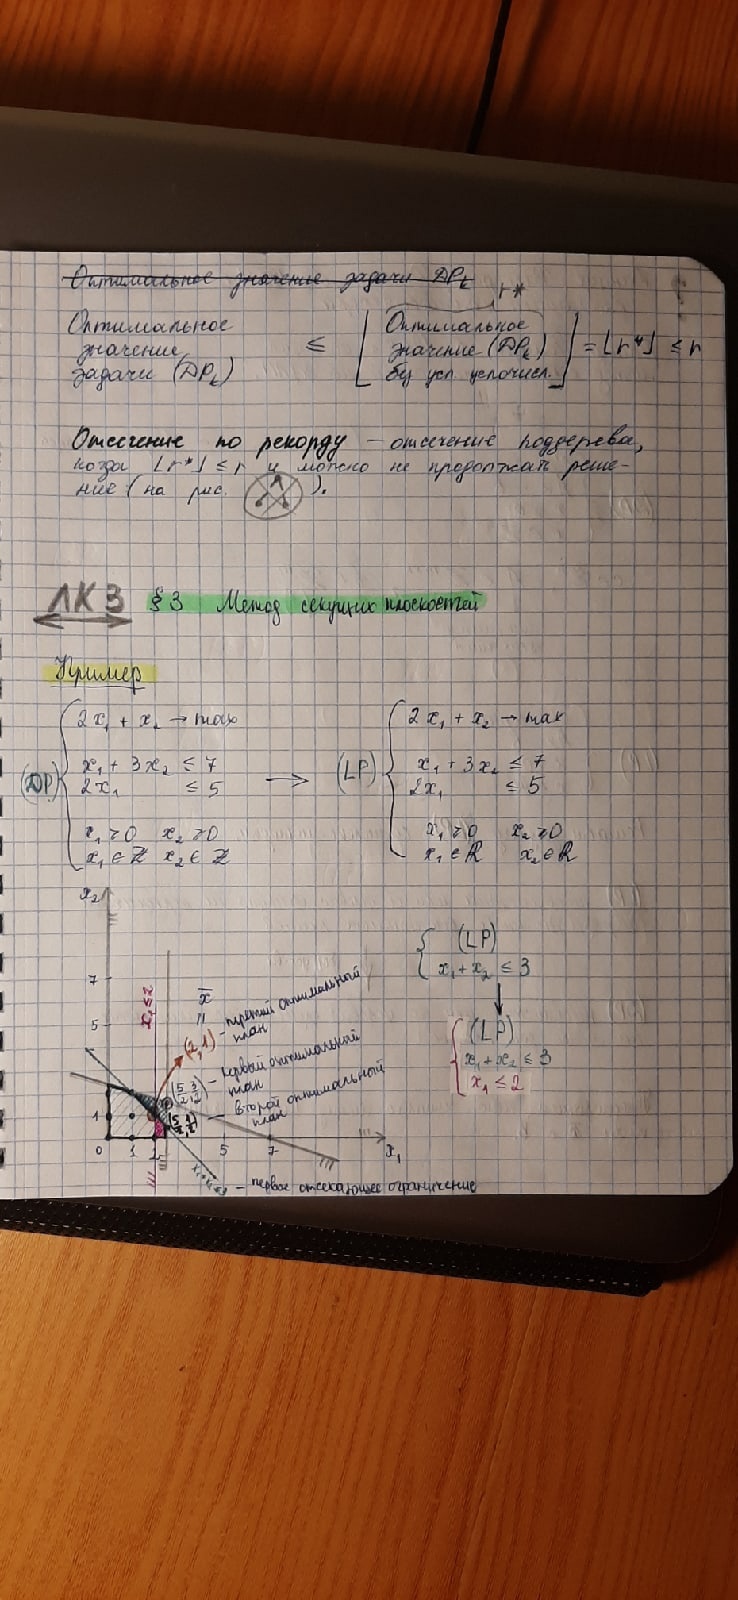 Оптимальное значение задачи DP_k
r*
Оптимальное значение задачи (DP_k) ≤ ⌊Оптимальное значение (DP_k) без усл. целочисл.⌋ = ⌊r*⌋ ≤ r
Отсечение по рекорду – отсечение поддерева,
когда ⌊r*⌋ ≤ r и можно не продолжать реше-
ние (на рис. ).
ЛК 3 § 3 Метод секущих плоскостей
Пример
(DP) (LP)
2x₁ + x₂ → max 2x₁ + x₂ → max
x₁ + 3x₂ ≤ 7 x₁ + 3x₂ ≤ 7
2x₁ ≤ 5 2x₁ ≤ 5
x₁ ≥ 0 x₂ ≥ 0 x₁ ≥ 0 x₂ ≥ 0
x₁ ∈ ℤ x₂ ∈ ℤ x₁ ∈ ℝ x₂ ∈ ℝ
x₂
(LP)
x₁ + x₂ ≤ 3
(LP)
x₁ + x₂ ≤ 3
x₁ ≤ 2
7
5
1
x₁ ≤ 2
x̄
"
(2,1) – третий оптимальный план
(5/2, 3/2) – первый оптимальный план
(5/2, 1/2) – второй оптимальный план
0 1 2 5 7 x₁
x₁+x₂≤3 – первое отсекающее ограничение